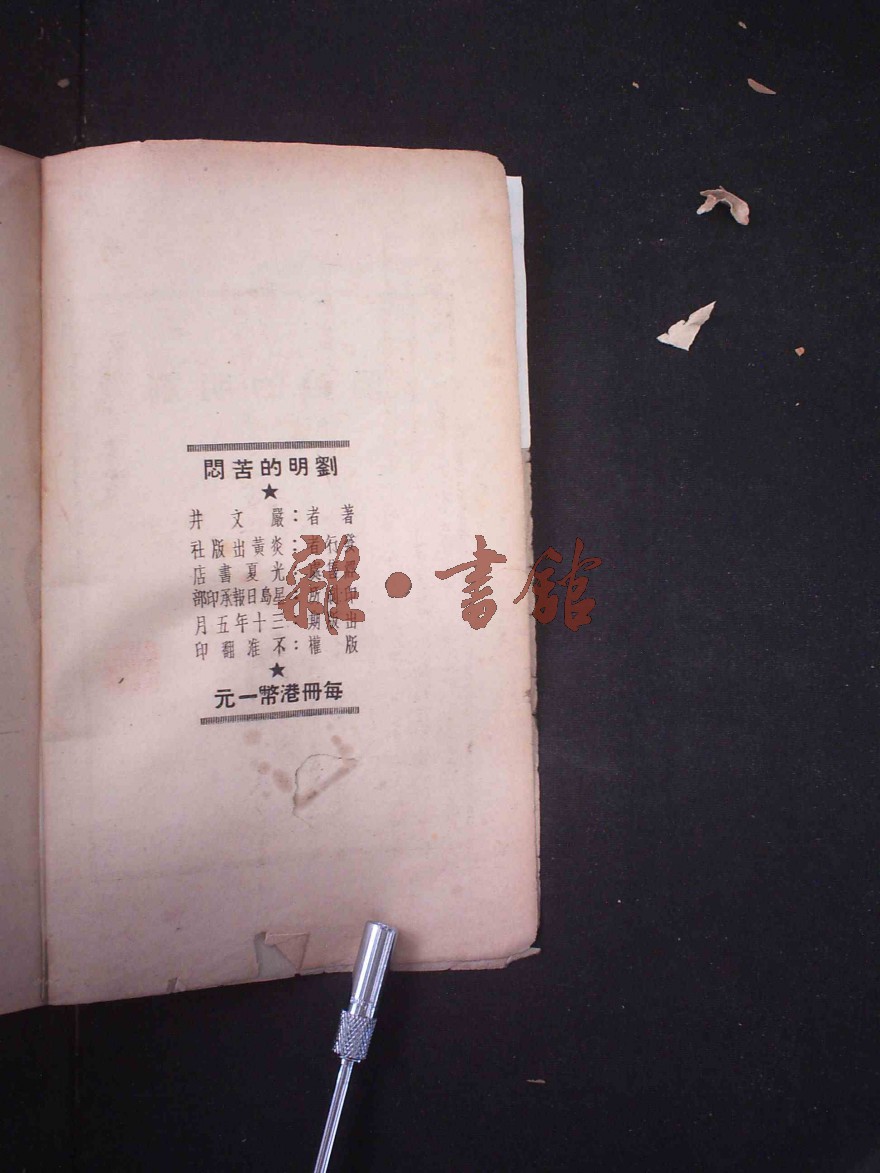 劉明的苦悶
★
著者：嚴文井
發行者：炎黃出版社
處：光夏書店
印刷所：星島日報承印部
出版期：三十年五月
版權：不准翻印
★
每冊港幣一元
雜·書館